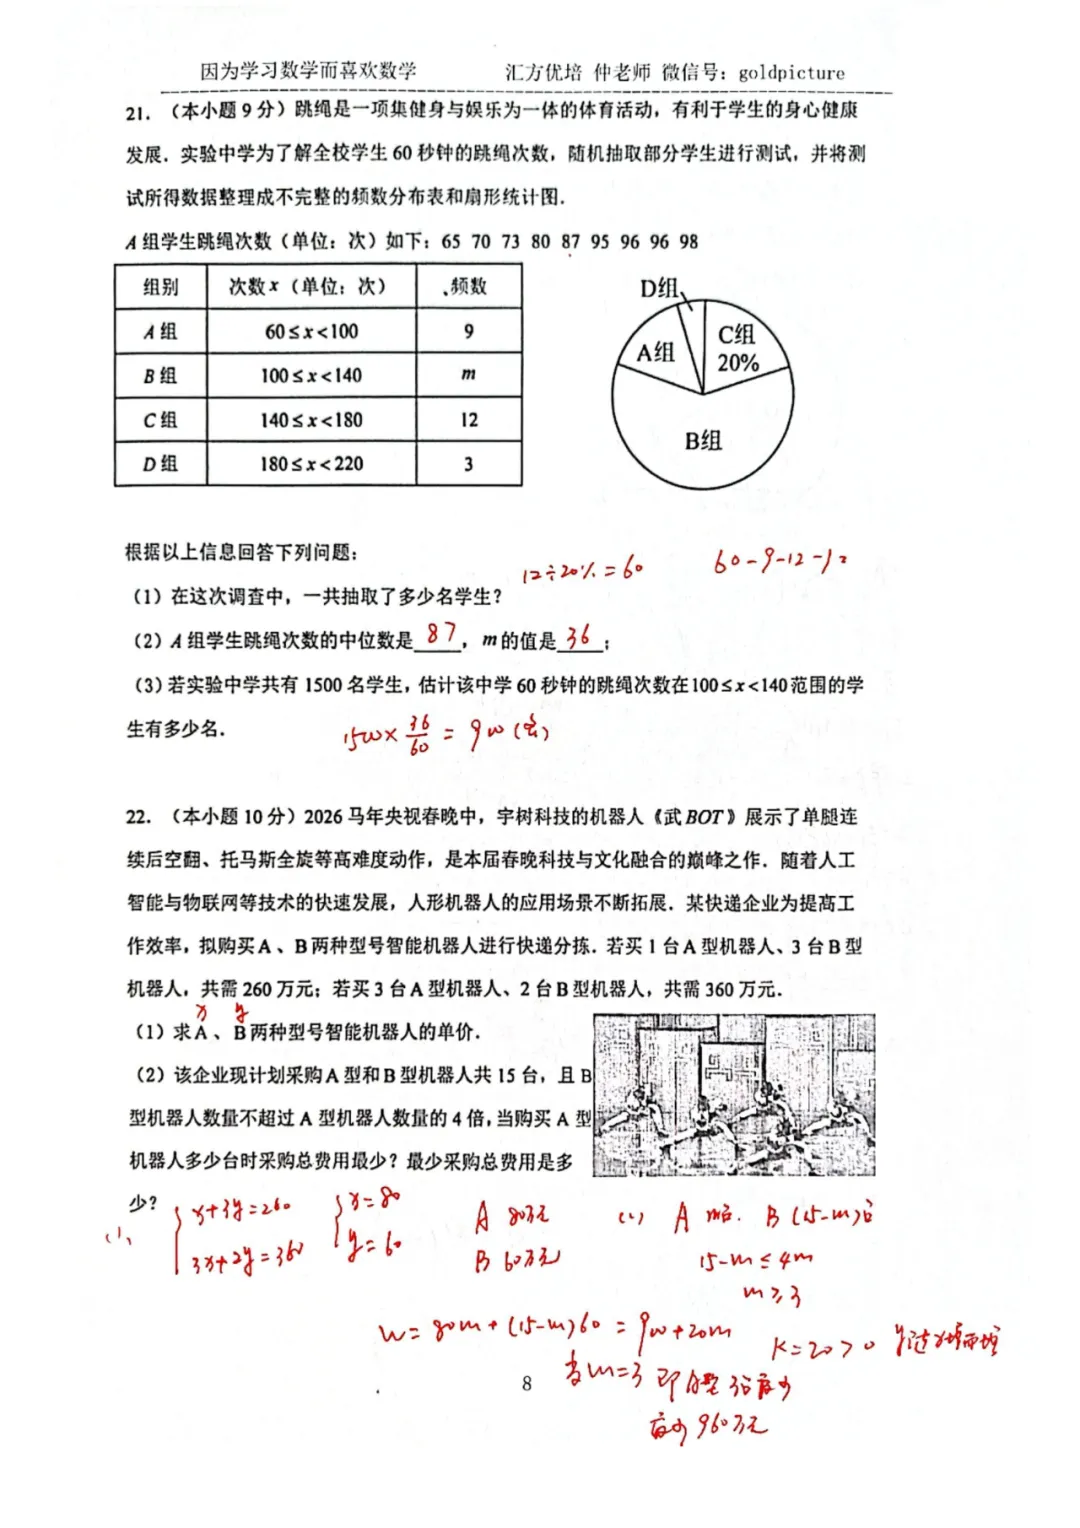 因为学习数学而喜欢数学 汇方优培 仲老师 微信号：goldpicture
21．（本小题 9 分）跳绳是一项集健身与娱乐为一体的体育活动，有利于学生的身心健康
发展．实验中学为了解全校学生 60 秒钟的跳绳次数，随机抽取部分学生进行测试，并将测
试所得数据整理成不完整的频数分布表和扇形统计图．
A 组学生跳绳次数（单位：次）如下：65 70 73 80 87 95 96 96 98
组别 次数 x（单位：次） 频数
A 组 60≤x<100 9
B 组 100≤x<140 m
C 组 140≤x<180 12
D 组 180≤x<220 3
D组
C组
20%
A组
B组
根据以上信息回答下列问题：
12÷20%=60 60-9-12-
（1）在这次调查中，一共抽取了多少名学生？
（2）A 组学生跳绳次数的中位数是 87 ，m 的值是 36 ；
（3）若实验中学共有 1500 名学生，估计该中学 60 秒钟的跳绳次数在100≤x<140范围的学
生有多少名．
1500×36/60=900（名）
22．（本小题 10 分）2026 马年央视春晚中，宇树科技的机器人《武BOT》展示了单腿连
续后空翻、托马斯全旋等高难度动作，是本届春晚科技与文化融合的巅峰之作．随着人工
智能与物联网等技术的快速发展，人形机器人的应用场景不断拓展．某快递企业为提高工
作效率，拟购买A、B两种型号智能机器人进行快递分拣．若买 1 台A型机器人、3 台B型
机器人，共需 260 万元；若买 3 台A型机器人、2 台B型机器人，共需 360 万元．
x y
（1）求A、B两种型号智能机器人的单价．
（2）该企业现计划采购A型和B型机器人共 15 台，且 B
型机器人数量不超过 A 型机器人数量的 4 倍，当购买 A 型
机器人多少台时采购总费用最少？最少采购总费用是多
少？
(1)
x+3y=260
3x+2y=360
x=80
y=60
A 80万元
B 60万元
(2) A m台. B (15-m)台
15-m≤4m
m≥3
W=80m+(15-m)60=900+20m
K=20>0
当m=3 即A型3台最少
最少960万元
8